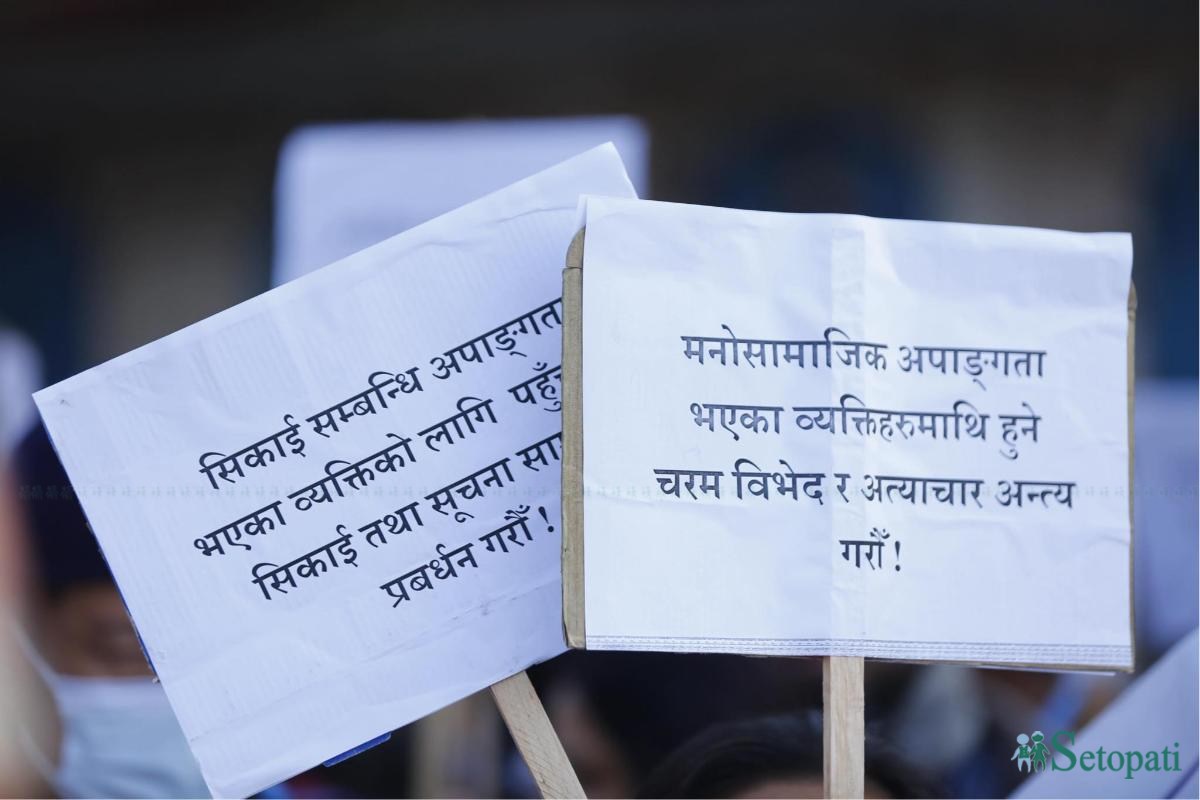 सिकाई सम्बन्धि अपाङ्गता
भएका व्यक्तिको लागि
सिकाई तथा सूचना
प्रबर्धन गरौँ !
मनोसामाजिक अपाङ्गता
भएका व्यक्तिहरुमाथि हुने
चरम विभेद र अत्याचार अन्त्य
गरौँ !
Setopati